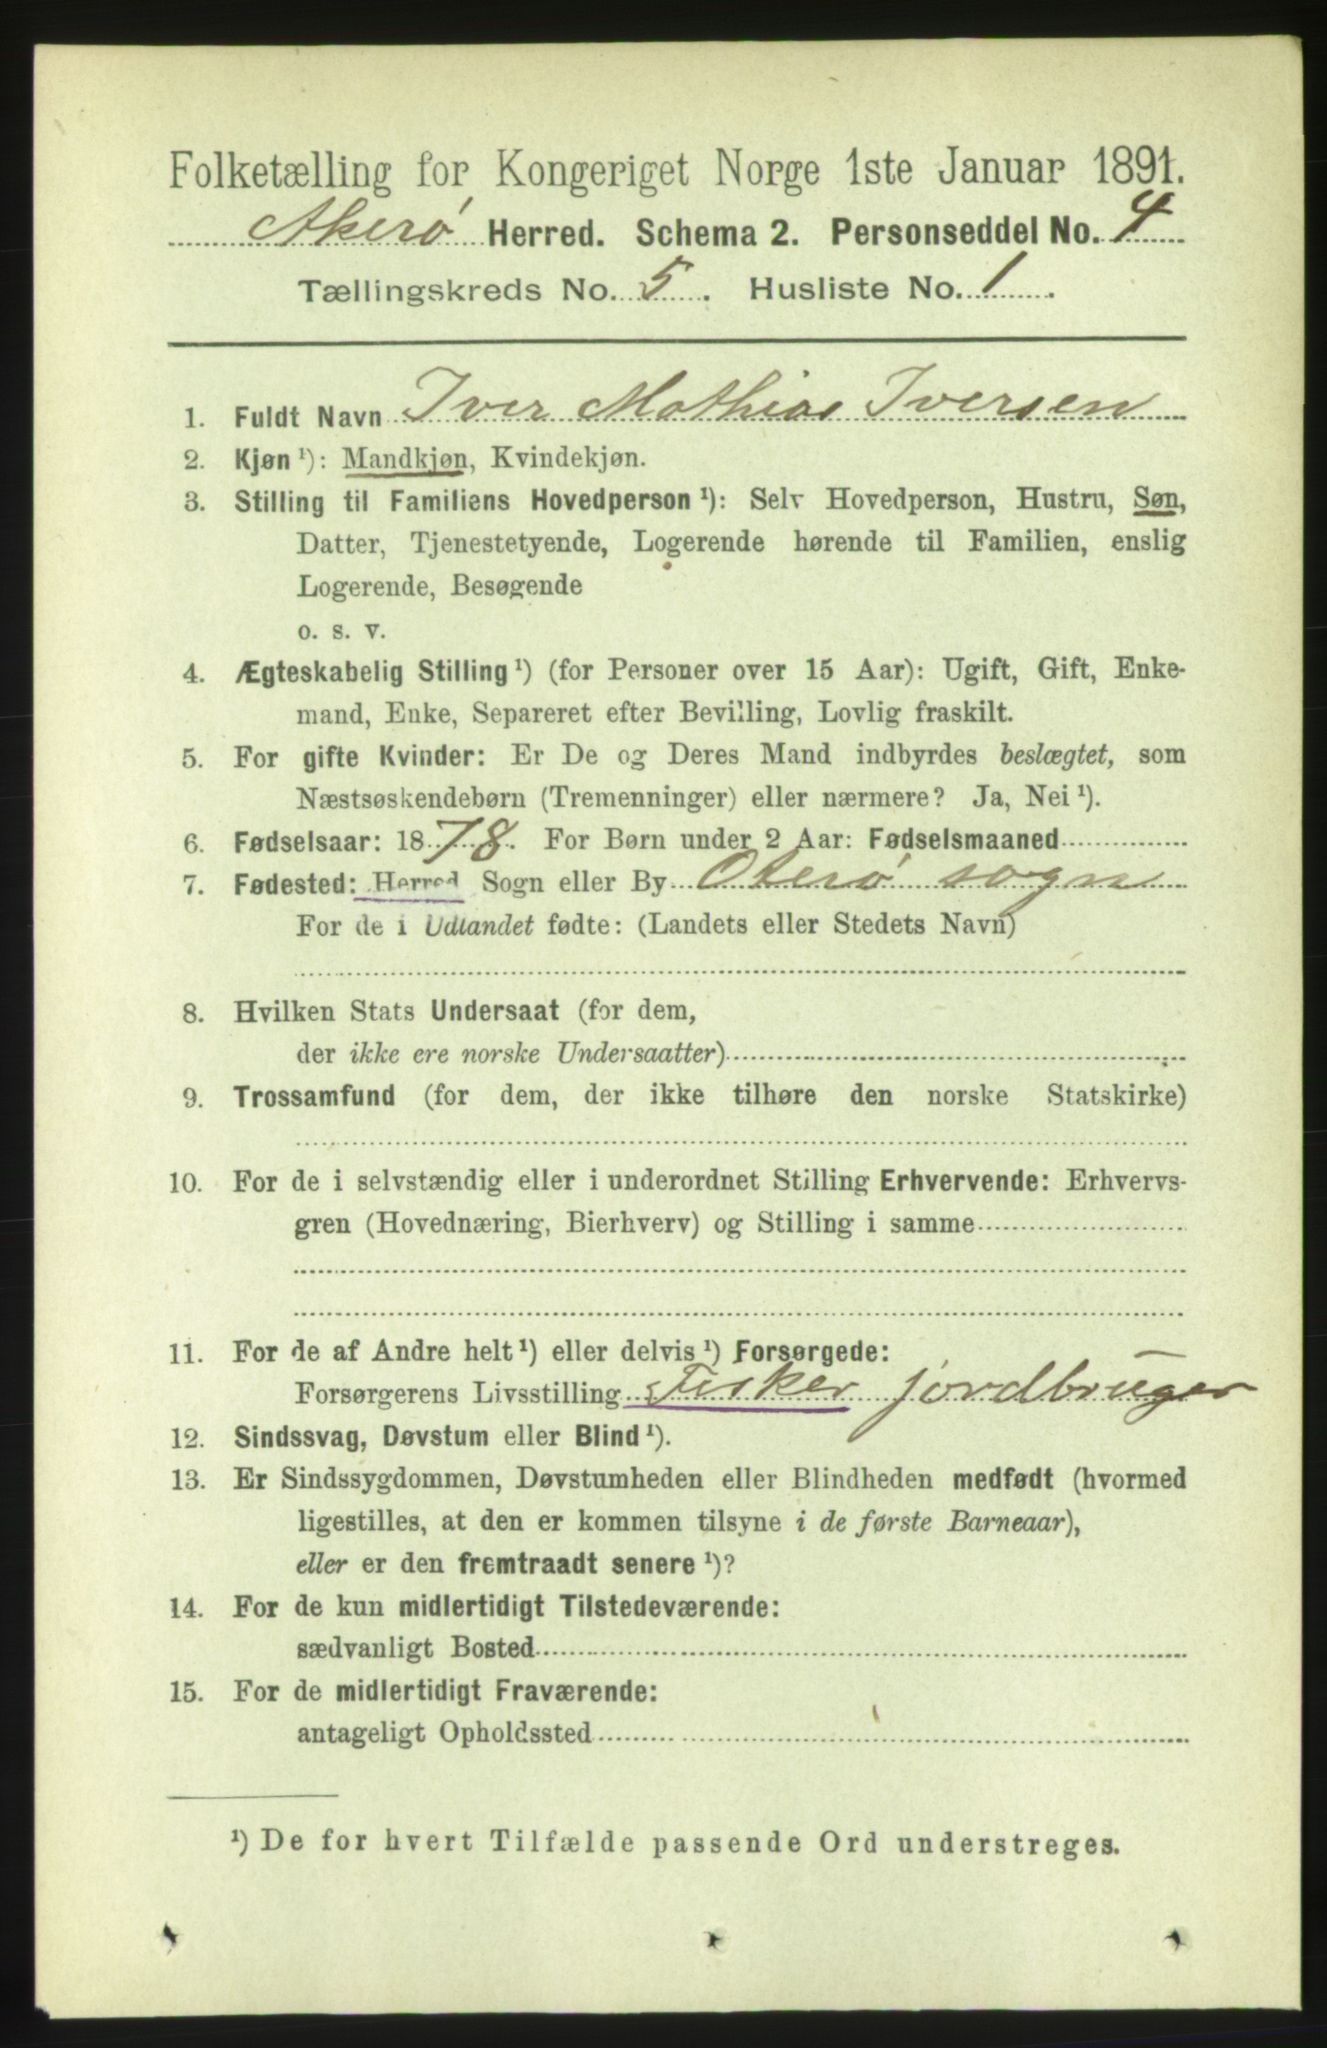 Folketælling for Kongeriget Norge 1ste Januar 1891.
Akerø Herred. Schema 2. Personseddel No. 4
Tællingskreds No. 5. Husliste No. 1.
1. Fuldt Navn Iver Mathias Iversen
2. Kjøn ¹): Mandkjøn, Kvindekjøn.
3. Stilling til Familiens Hovedperson ¹): Selv Hovedperson, Hustru, Søn,
Datter, Tjenestetyende, Logerende hørende til Familien, enslig
Logerende, Besøgende
o. s. v.
4. Ægteskabelig Stilling ¹) (for Personer over 15 Aar): Ugift, Gift, Enke-
mand, Enke, Separeret efter Bevilling, Lovlig fraskilt.
5. For gifte Kvinder: Er De og Deres Mand indbyrdes beslægtet, som
Næstsøskendebørn (Tremenninger) eller nærmere? Ja, Nei ¹).
6. Fødselsaar: 1878. For Børn under 2 Aar: Fødselsmaaned
7. Fødested: Herred Sogn eller By Oterø sogn
For de i Udlandet fødte: (Landets eller Stedets Navn)
8. Hvilken Stats Undersaat (for dem,
der ikke ere norske Undersaatter)
9. Trossamfund (for dem, der ikke tilhøre den norske Statskirke)
10. For de i selvstændig eller i underordnet Stilling Erhvervende: Erhvervs-
gren (Hovednæring, Bierhverv) og Stilling i samme
11. For de af Andre helt ¹) eller delvis ¹) Forsørgede:
Forsørgerens Livsstilling Fisker jordbruger
12. Sindssvag, Døvstum eller Blind ¹).
13. Er Sindssygdommen, Døvstumheden eller Blindheden medfødt (hvormed
ligestilles, at den er kommen tilsyne i de første Barneaar),
eller er den fremtraadt senere ¹)?
14. For de kun midlertidigt Tilstedeværende:
sædvanligt Bosted
15. For de midlertidigt Fraværende:
antageligt Opholdssted
¹) De for hvert Tilfælde passende Ord understreges.